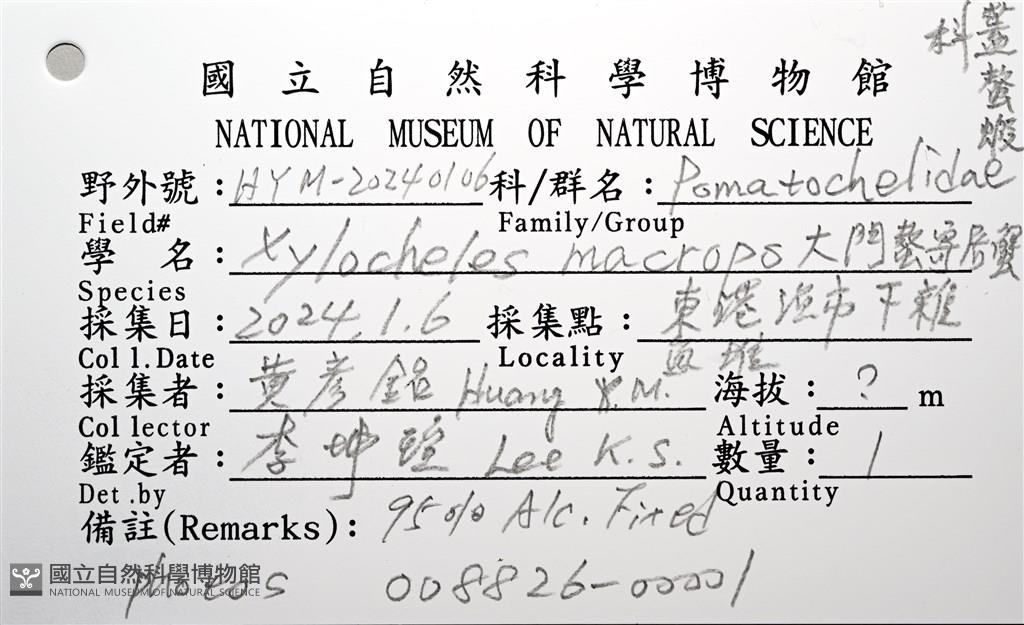 蓋螯蝦科
國立自然科學博物館
NATIONAL MUSEUM OF NATURAL SCIENCE
野外號：HYM-20240106 科/群名：Pomatochelidae
Field# Family/Group
學名：Xylocheles macrops 大門螯寄居蟹
Species
採集日：2024.1.6 採集點：東港漁市下雜魚堆
Coll.Date Locality
採集者：黃彥銘 Huang Y.M. 海拔：? m
Collector Altitude
鑑定者：李坤瑄 Lee K.S. 數量：1
Det.by Quantity
備註(Remarks)：95% Alc. Fixed
photos 008826-00001
國立自然科學博物館
NATIONAL MUSEUM OF NATURAL SCIENCE